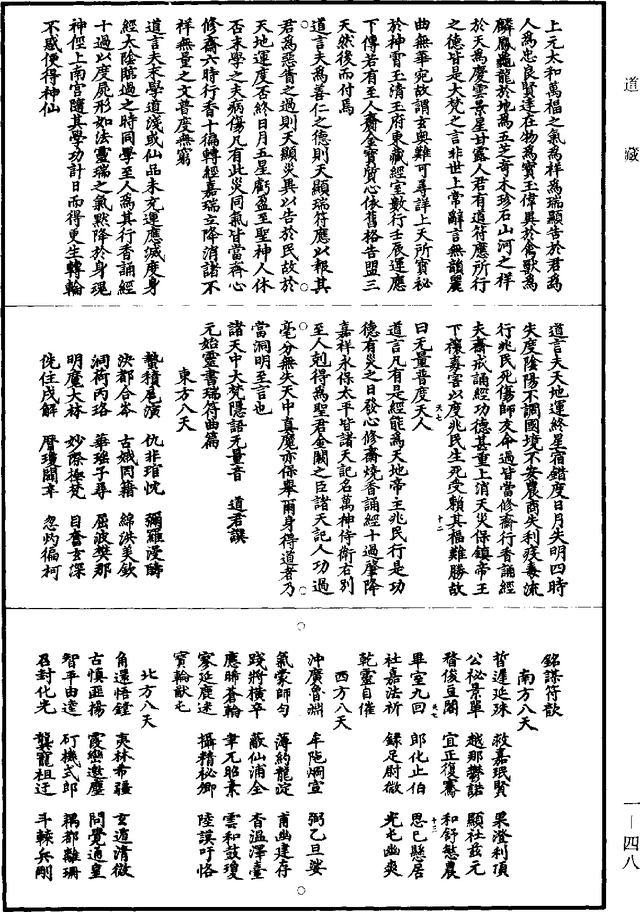 道藏
上元太和萬福之氣為祥為瑞顯告於君為
人為忠良賢達在物為寶玉偉異於禽獸為
麟鳳龜龍於地為五芝奇木珍石山河之祥
於天為慶雲景星甘露人君有道符應所行
之德皆是大梵之言非世上常辭言無韻麗
曲無華宛故謂玄奧難可尋詳上天所寶秘
於神霄玉清玉府東藏經室數行壬辰運應
下傳若有至人齎金寶質心依舊格告盟三
天然後而付焉
道言夫為善仁之德則天顯瑞符應以報其
君為惡眚之過則天顯災異以告於民故於
天地運度否終日月五星虧盈至聖神人休
否末學之夫病傷凡有此災同氣皆當齊心
修齋六時行香十徧轉經嘉瑞立降消諸不
祥無量之文普度無窮
道言夫末學道淺或仙品未充運應滅度身
經太陰臨過之時同學至人為其行香誦經
十過以度屍形如法靈瑞之氣默降於身魂
神徑上南宮隨其學功計日而得更生轉輪
不滅便得神仙
道言夫天地運終星宿錯度日月失明四時
失度陰陽不調國境不安農商失利疫毒流
行兆民死傷師友命過皆當修齋行香誦經
夫齋戒誦經功德甚重上消天災保鎮帝王
下禳毒害以度兆民生死受賴其福難勝故
曰無量普度天人
道言凡有是經能為天地帝王兆民行是功
德有災之日發心修齋燒香誦經十過摩降
嘉祥永保太平皆諸天記名萬神侍衛右別
至人剋得為聖君金闕之臣諸天記人功過
毫分無失天中真魔亦保舉爾身得道者乃
當洞明至言也
諸天中大梵隱語無量音 道君譔
元始靈書瑞符曲篇
東方八天
贄積尾演 仇非琯忱 彌羅漫疇
決都合岑 古娥罔籍 綿洪美欽
洞荷丙珞 華瑤子尋 屈波樊那
明魔大林 妙際極梵 目奮玄深
侊住戌解 曆瓊閭丰 忽灼徧柯
銘謀符歆
南方八天
晢遲延殊 救嘉珉賢 果澄利頂
公秘景單 越那鬱諾 顯社茲元
督俊亘閣 宜正復騫 和舒慾農
畢室九回 郎化止伯 思巳懸居
社嘉法祈 錄足尉微 光屯幽爽
乾靈自催
西方八天
沖廣魯淵 牟陁烱宣 弼乙旦娑
氣蒙師勻 薄約龍淀 甫幽建存
踐將橫卒 敲仙浦全 香溫澤臺
應晞蒼輪 韋兀昭素 雲和鼓瓊
家延塵迷 攝精秘卿 陸謨吁恪
寶輪猷屯
北方八天
角還悟鏜 夷林希疆 玄遁清徵
古慎亞楊 霞巒遨塵 問覺通皇
智平由達 矴機式郎 耦都難珊
召封化光 龔寵祖迂 斗棘兵剛
一—四八